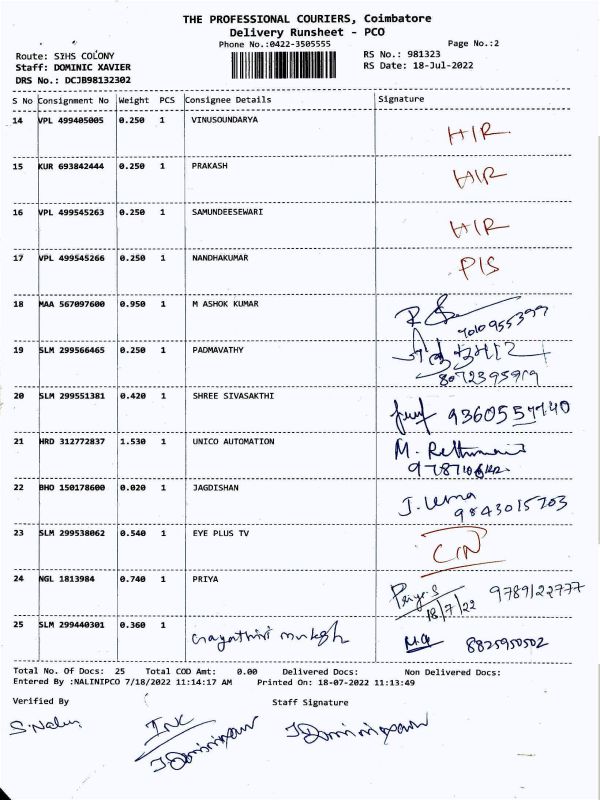 THE PROFESSIONAL COURIERS, Coimbatore
Delivery Runsheet - PCO
Phone No.:0422-3505555 Page No.:2
Route: SIHS COLONY RS No.: 981323
Staff: DOMINIC XAVIER RS Date: 18-Jul-2022
DRS No.: DCJB98132302
S No Consignment No Weight PCS Consignee Details Signature
14 VPL 499405005 0.250 1 VINUSOUNDARYA HIR
15 KUR 693842444 0.250 1 PRAKASH HIR
16 VPL 499545263 0.250 1 SAMUNDEESEWARI HIR
17 VPL 499545266 0.250 1 NANDHAKUMAR PIS
18 MAA 567097600 0.950 1 M ASHOK KUMAR
19 SLM 299566465 0.250 1 PADMAVATHY
8072395979
20 SLM 299551381 0.420 1 SHREE SIVASAKTHI
21 HRD 312772837 1.530 1 UNICO AUTOMATION M.
22 BHO 150178600 0.020 1 JAGDISHAN J. Uma
9843015203
23 SLM 299538062 0.540 1 EYE PLUS TV CIN
24 NGL 1813984 0.740 1 PRIYA Priya.S 9789122777
18/7/22
25 SLM 299440301 0.360 1 Gayathiri mukesh 8825950502
Total No. Of Docs: 25 Total COD Amt: 0.00 Delivered Docs: Non Delivered Docs:
Entered By :NALINIPCO 7/18/2022 11:14:17 AM Printed On: 18-07-2022 11:13:49
Verified By Staff Signature
S.Nalini INK J Dominicxavier J Dominicxavier